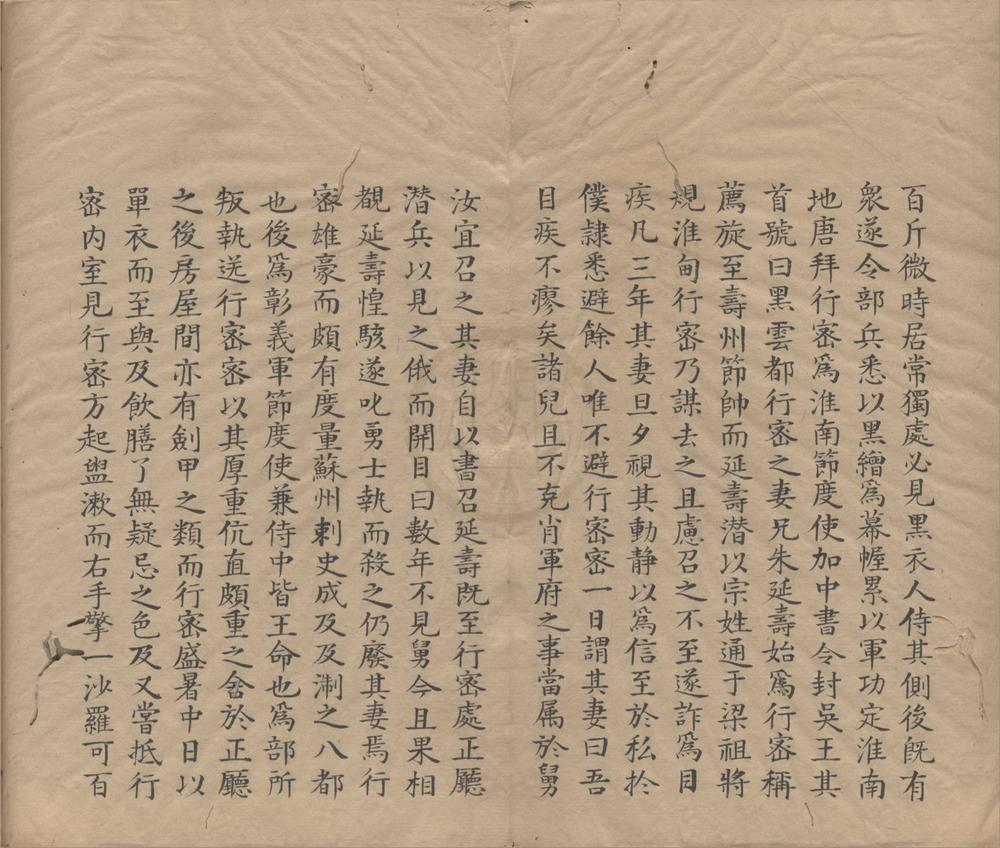 百斤微時居常獨處必見黑衣人侍其側後既有
衆遂令部兵悉以黑繒爲幕幄累以軍功定淮南
地唐拜行密爲淮南節度使加中書令封吳王其
首號曰黑雲都行密之妻兄朱延壽始爲行密稱
薦旋至壽州節帥而延壽潜以宗姓通于梁祖將
規淮甸行密乃謀去之且慮召之不至遂詐爲目
疾凡三年其妻旦夕視其動靜以爲信至於私於
僕隷悉避餘人唯不避行密密一日謂其妻曰吾
目疾不瘳矣諸兒且不克肖軍府之事當属於舅
汝宜召之其妻自以書召延壽既至行密處正廳
潜兵以見之俄而開目曰數年不見舅今且果相
覩延壽惶駭遂叱勇士執而殺之仍廢其妻焉行
密雄豪而頗有度量蘇州刺史成及及淛之八都
也後爲彰義軍節度使兼侍中皆王命也爲部所
叛執送行密密以其厚重伉直頗重之舍於正廳
之後房屋間亦有劍甲之類而行密盛暑中日以
單衣而至與及飲膳了無疑忌之色及又嘗抵行
密内室見行密方起盥漱而右手擎一沙羅可百